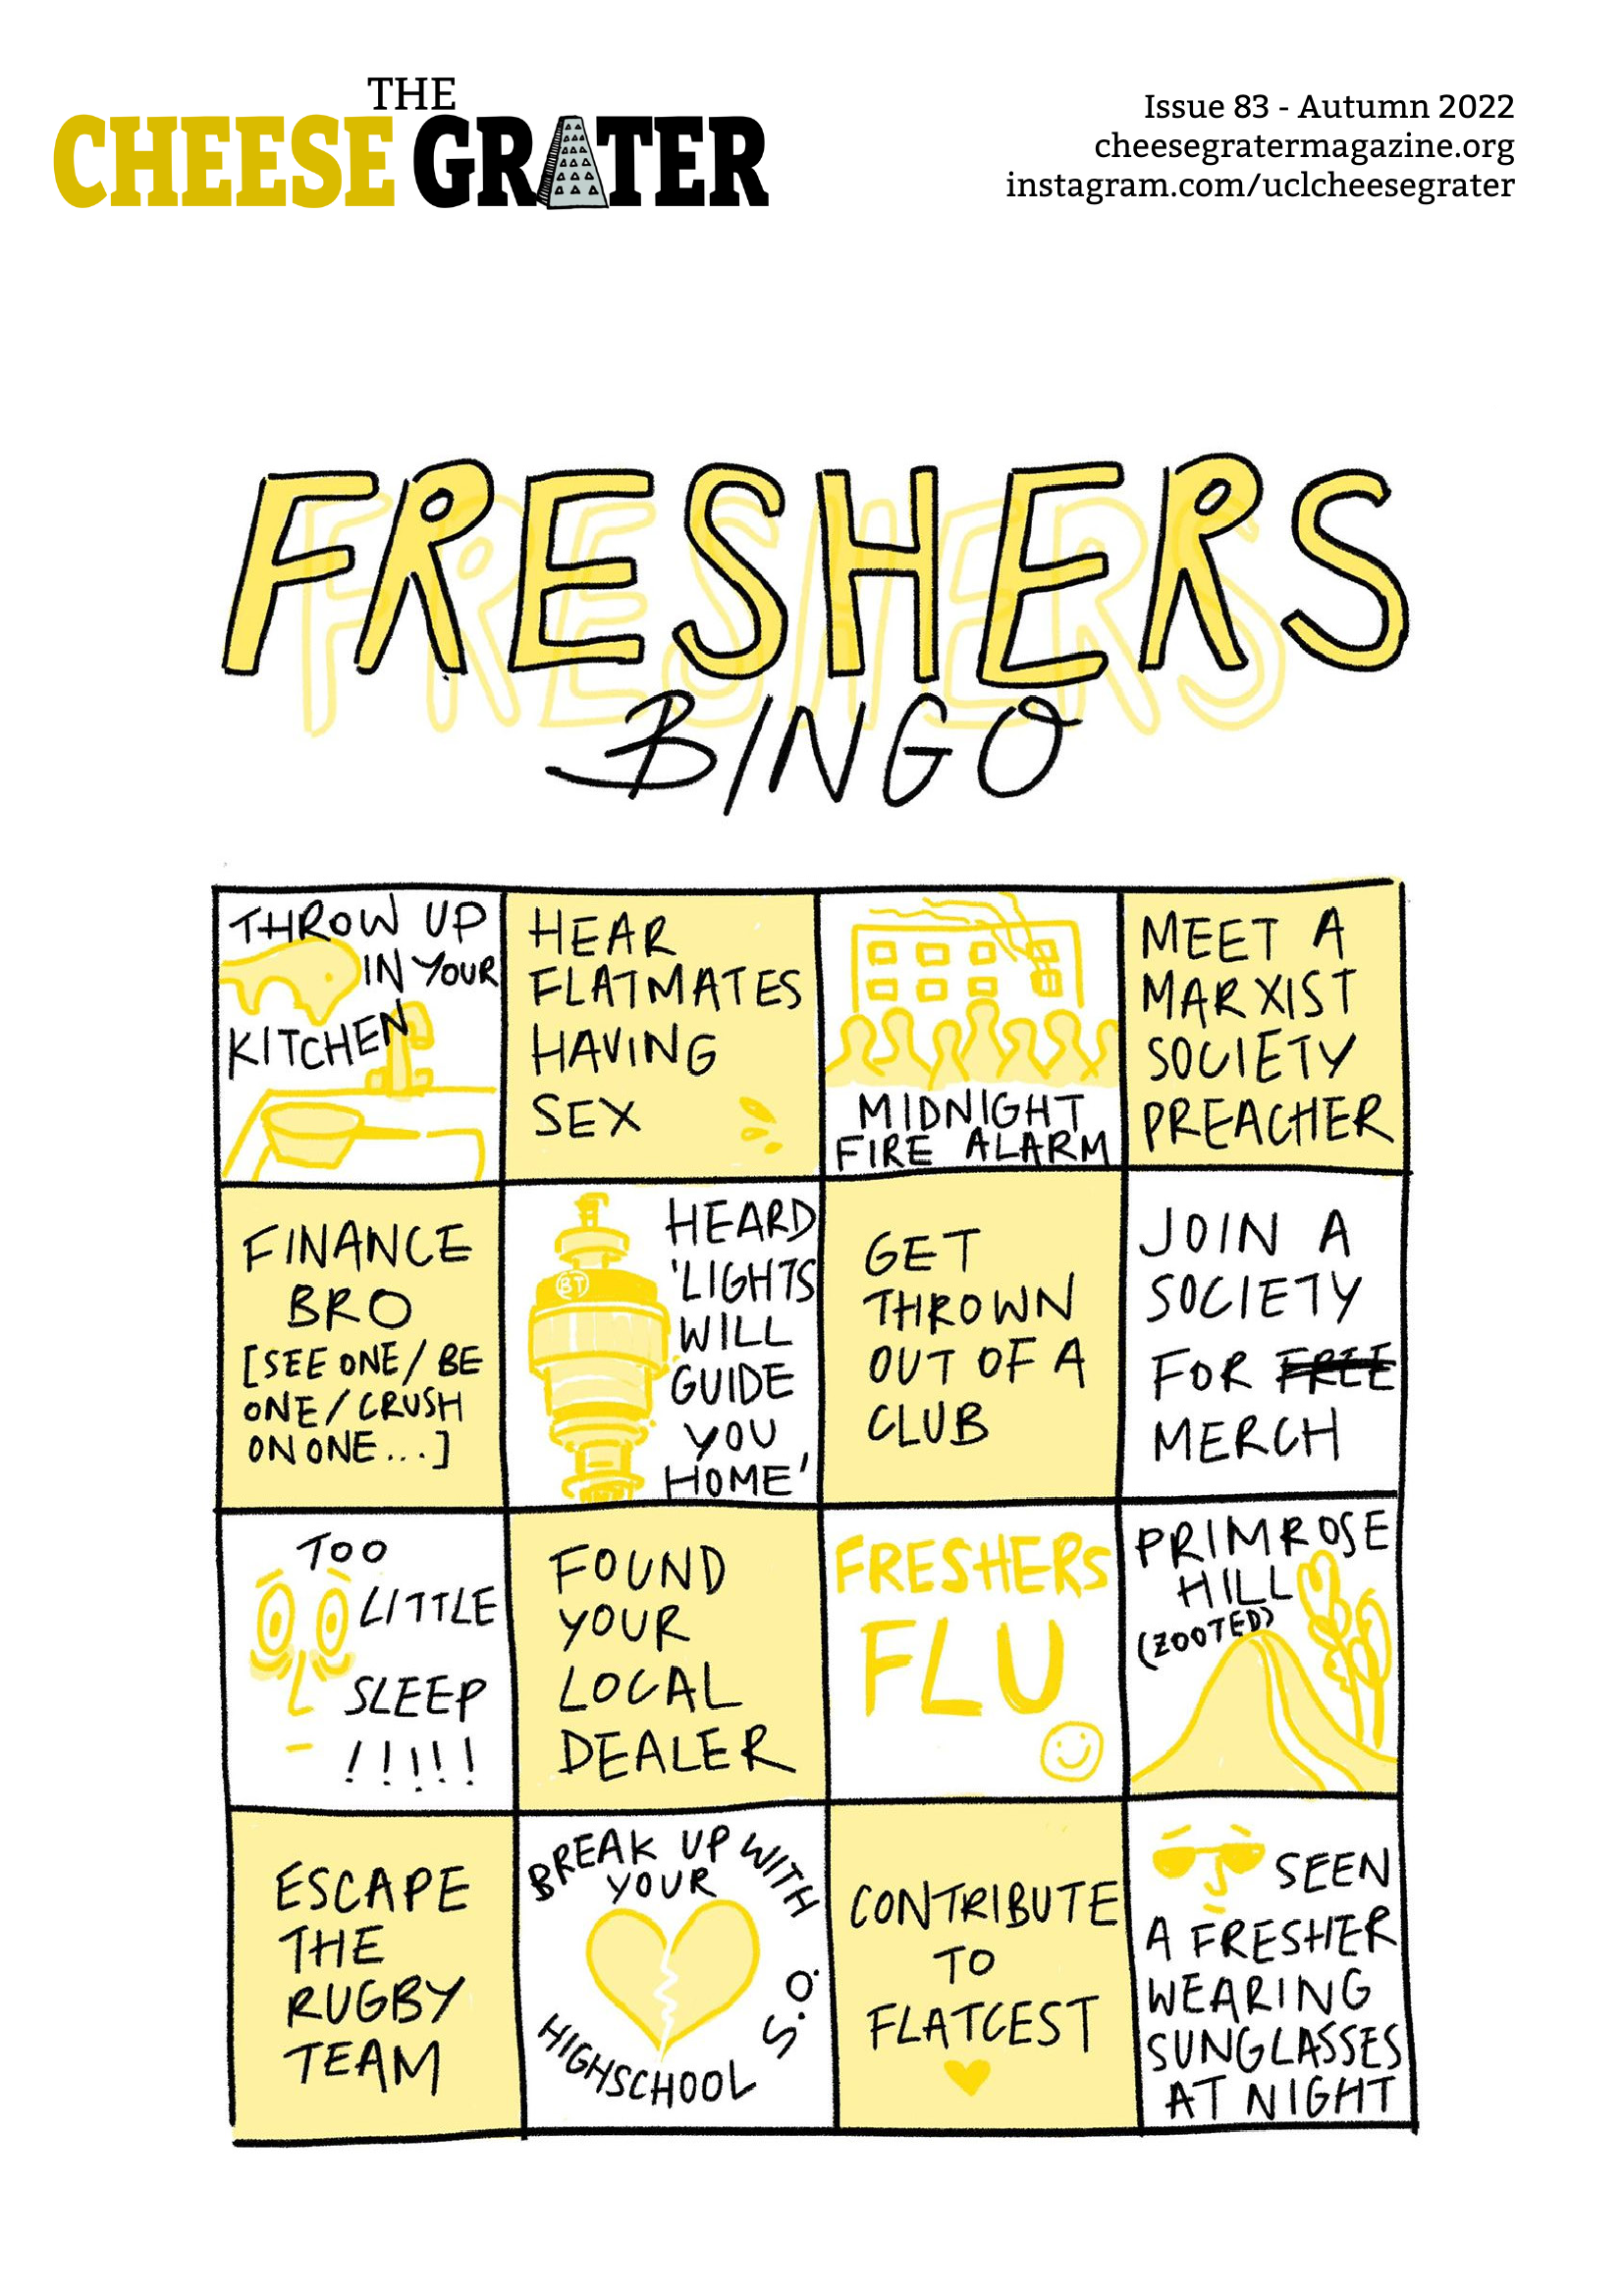 THE
CHEESE GRATER
Issue 83 - Autumn 2022
cheesegratermagazine.org
instagram.com/uclcheesegrater
FRESHERS
BINGO
THROW UP
IN YOUR
KITCHEN
HEAR
FLATMATES
HAVING
SEX
MIDNIGHT
FIRE ALARM
MEET A
MARXIST
SOCIETY
PREACHER
FINANCE
BRO
[SEE ONE/BE
ONE/CRUSH
ON ONE...]
BT
HEARD
'LIGHTS
WILL
GUIDE
YOU
HOME'
GET
THROWN
OUT OF A
CLUB
JOIN A
SOCIETY
FOR FREE
MERCH
TOO
LITTLE
SLEEP
!!!!!
FOUND
YOUR
LOCAL
DEALER
FRESHERS
FLU
PRIMROSE
HILL
(ZOOTED)
ESCAPE
THE
RUGBY
TEAM
BREAK UP WITH
YOUR
HIGHSCHOOL S.O.
CONTRIBUTE
TO
FLATCEST
SEEN
A FRESHER
WEARING
SUNGLASSES
AT NIGHT